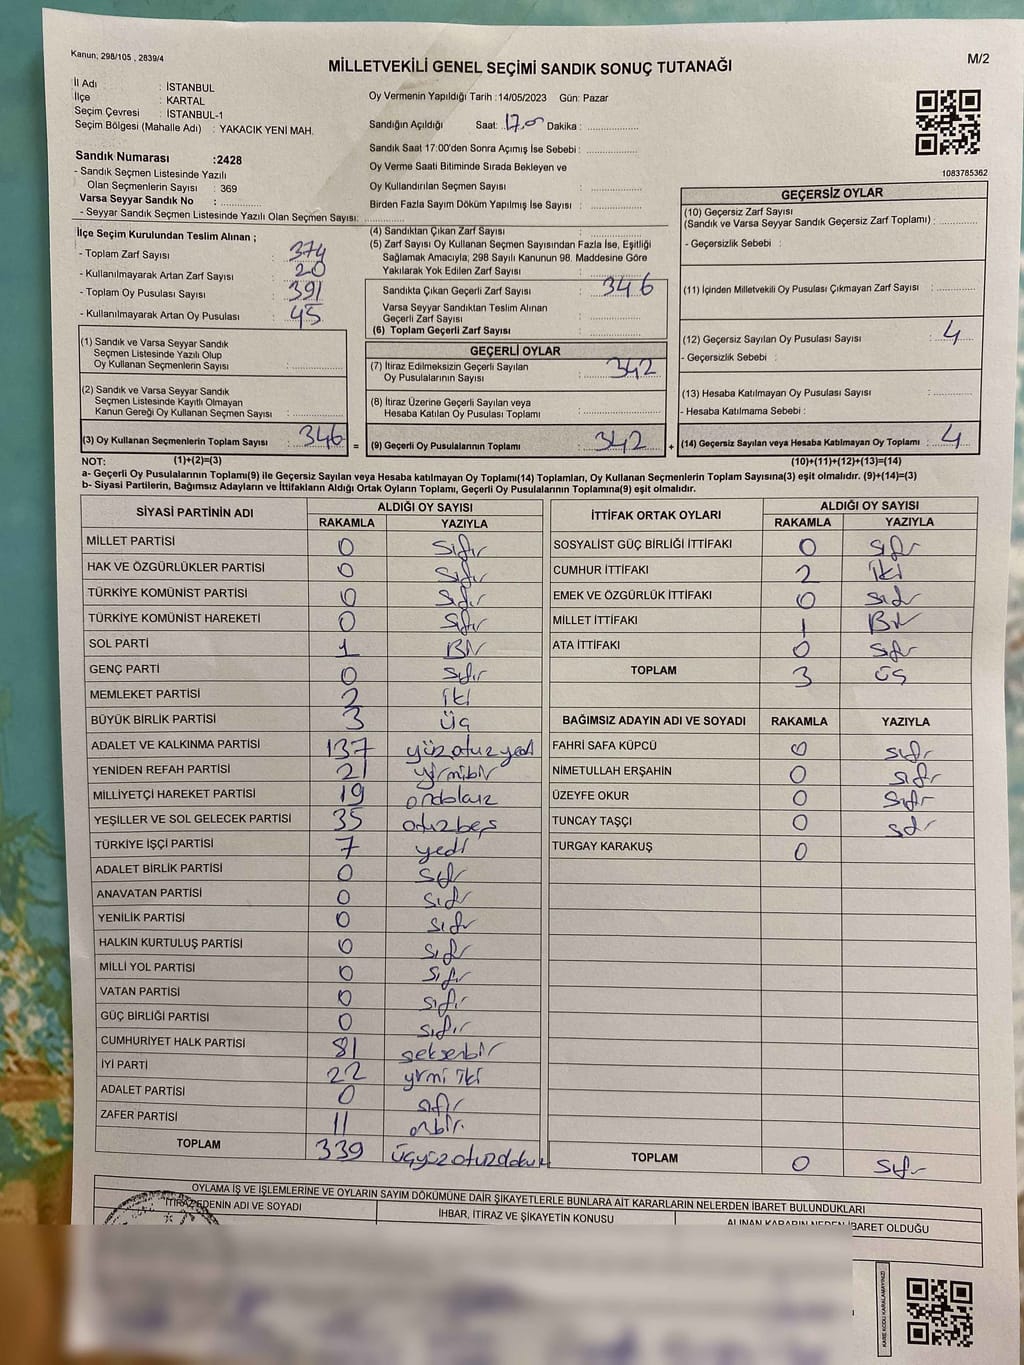 Kanun; 298/105 , 2839/4
M/2
MİLLETVEKİLİ GENEL SEÇİMİ SANDIK SONUÇ TUTANAĞI
İl Adı : İSTANBUL
İlçe : KARTAL
Seçim Çevresi : İSTANBUL-1
Seçim Bölgesi (Mahalle Adı) : YAKACIK YENİ MAH.
Oy Vermenin Yapıldığı Tarih :14/05/2023 Gün: Pazar
Sandığın Açıldığı Saat: 17.00 Dakika :
Sandık Saat 17:00'den Sonra Açımış İse Sebebi :
Oy Verme Saati Bitiminde Sırada Bekleyen ve
Oy Kullandırılan Seçmen Sayısı :
Birden Fazla Sayım Döküm Yapılmış İse Sayısı :
1083785362
Sandık Numarası :2428
- Sandık Seçmen Listesinde Yazılı
Olan Seçmenlerin Sayısı : 369
Varsa Seyyar Sandık No :
- Seyyar Sandık Seçmen Listesinde Yazılı Olan Seçmen Sayısı:
İlçe Seçim Kurulundan Teslim Alınan ;
- Toplam Zarf Sayısı : 374
- Kullanılmayarak Artan Zarf Sayısı : 20
- Toplam Oy Pusulası Sayısı : 391
- Kullanılmayarak Artan Oy Pusulası : 45
(1) Sandık ve Varsa Seyyar Sandık
Seçmen Listesinde Yazılı Olup
Oy Kullanan Seçmenlerin Sayısı :
(2) Sandık ve Varsa Seyyar Sandık
Seçmen Listesinde Kayıtlı Olmayan
Kanun Gereği Oy Kullanan Seçmen Sayısı :
(3) Oy Kullanan Seçmenlerin Toplam Sayısı : 346
(4) Sandıktan Çıkan Zarf Sayısı :
(5) Zarf Sayısı Oy Kullanan Seçmen Sayısından Fazla İse, Eşitliği
Sağlamak Amacıyla; 298 Sayılı Kanunun 98. Maddesine Göre
Yakılarak Yok Edilen Zarf Sayısı :
Sandıkta Çıkan Geçerli Zarf Sayısı : 346
Varsa Seyyar Sandıktan Teslim Alınan
Geçerli Zarf Sayısı :
(6) Toplam Geçerli Zarf Sayısı :
GEÇERLİ OYLAR
(7) İtiraz Edilmeksizin Geçerli Sayılan
Oy Pusulalarının Sayısı : 342
(8) İtiraz Üzerine Geçerli Sayılan veya
Hesaba Katılan Oy Pusulası Toplamı :
= (9) Geçerli Oy Pusulalarının Toplamı : 342
GEÇERSİZ OYLAR
(10) Geçersiz Zarf Sayısı
(Sandık ve Varsa Seyyar Sandık Geçersiz Zarf Toplamı) :
- Geçersizlik Sebebi :
(11) İçinden Milletvekili Oy Pusulası Çıkmayan Zarf Sayısı :
(12) Geçersiz Sayılan Oy Pusulası Sayısı : 4
- Geçersizlik Sebebi :
(13) Hesaba Katılmayan Oy Pusulası Sayısı :
- Hesaba Katılmama Sebebi :
+ (14) Geçersiz Sayılan veya Hesaba Katılmayan Oy Toplamı : 4
NOT: (1)+(2)=(3)
(10)+(11)+(12)+(13)=(14)
a- Geçerli Oy Pusulalarının Toplamı(9) ile Geçersiz Sayılan veya Hesaba katılmayan Oy Toplamı(14) Toplamları, Oy Kullanan Seçmenlerin Toplam Sayısına(3) eşit olmalıdır. (9)+(14)=(3)
b- Siyasi Partilerin, Bağımsız Adayların ve İttifakların Aldığı Ortak Oyların Toplamı, Geçerli Oy Pusulalarının Toplamına(9) eşit olmalıdır.
SİYASİ PARTİNİN ADI ALDIĞI OY SAYISI
RAKAMLA YAZIYLA
MİLLET PARTİSİ 0 sıfır
HAK VE ÖZGÜRLÜKLER PARTİSİ 0 sıfır
TÜRKİYE KOMÜNİST PARTİSİ 0 sıfır
TÜRKİYE KOMÜNİST HAREKETİ 0 sıfır
SOL PARTİ 1 Bir
GENÇ PARTİ 0 sıfır
MEMLEKET PARTİSİ 2 iki
BÜYÜK BİRLİK PARTİSİ 3 üç
ADALET VE KALKINMA PARTİSİ 137 yüzotuzyedi
YENİDEN REFAH PARTİSİ 21 yirmibir
MİLLİYETÇİ HAREKET PARTİSİ 19 ondokuz
YEŞİLLER VE SOL GELECEK PARTİSİ 35 otuzbeş
TÜRKİYE İŞÇİ PARTİSİ 7 yedi
ADALET BİRLİK PARTİSİ 0 sıfır
ANAVATAN PARTİSİ 0 sıfır
YENİLİK PARTİSİ 0 sıfır
HALKIN KURTULUŞ PARTİSİ 0 sıfır
MİLLİ YOL PARTİSİ 0 sıfır
VATAN PARTİSİ 0 sıfır
GÜÇ BİRLİĞİ PARTİSİ 0 sıfır
CUMHURİYET HALK PARTİSİ 81 seksenbir
İYİ PARTİ 22 yirmi iki
ADALET PARTİSİ 0 sıfır
ZAFER PARTİSİ 11 onbir
TOPLAM 339 üçyüzotuzdokuz
İTTİFAK ORTAK OYLARI ALDIĞI OY SAYISI
RAKAMLA YAZIYLA
SOSYALİST GÜÇ BİRLİĞİ İTTİFAKI 0 sıfır
CUMHUR İTTİFAKI 2 iki
EMEK VE ÖZGÜRLÜK İTTİFAKI 0 sıfır
MİLLET İTTİFAKI 1 Bir
ATA İTTİFAKI 0 sıfır
TOPLAM 3 üç
BAĞIMSIZ ADAYIN ADI VE SOYADI RAKAMLA YAZIYLA
FAHRİ SAFA KÜPCÜ 0 sıfır
NİMETULLAH ERŞAHİN 0 sıfır
ÜZEYFE OKUR 0 sıfır
TUNCAY TAŞÇI 0 sıfır
TURGAY KARAKUŞ 0
TOPLAM 0 sıfır
OYLAMA İŞ VE İŞLEMLERİNE VE OYLARIN SAYIM DÖKÜMÜNE DAİR ŞİKAYETLERLE BUNLARA AİT KARARLARIN NELERDEN İBARET BULUNDUKLARI
İTİRAZ EDENİN ADI VE SOYADI
İHBAR, İTİRAZ VE ŞİKAYETİN KONUSU
ALINAN KARARIN NEDEN İBARET OLDUĞU
KARE KODU KARALAMAYINIZ!